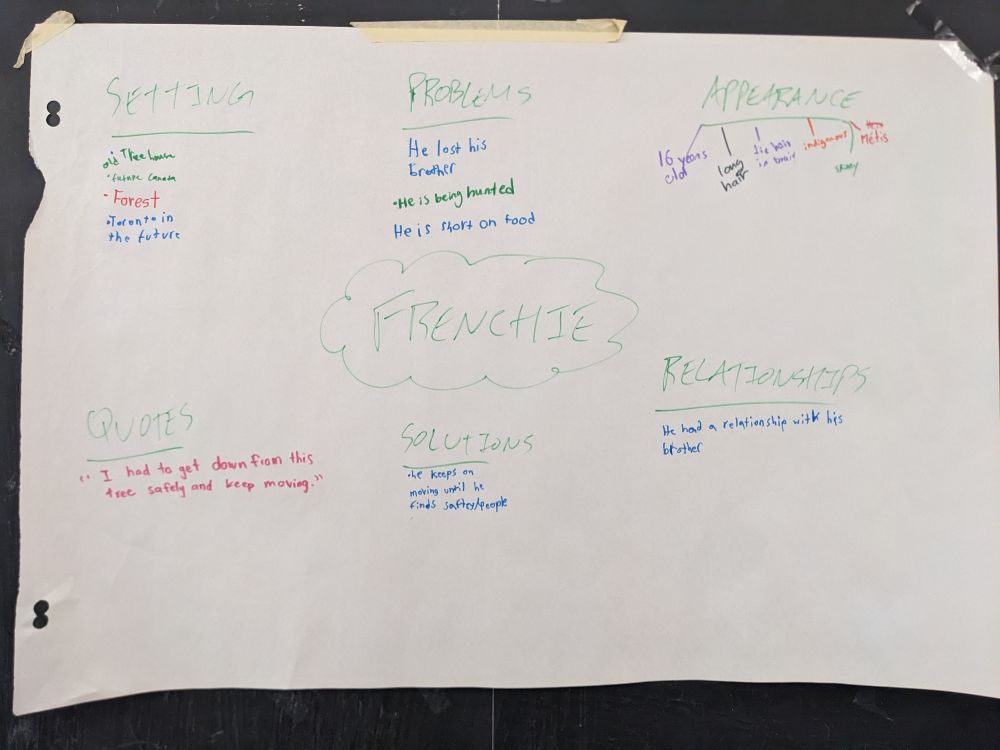 SETTING
old Treehouse
• future Canada
• Forest
• Toronto in
the future
PROBLEMS
He lost his
brother
• He is being hunted
He is short on food
APPEARANCE
16 years
old
long
hair
hair
in braid
indigenous
skinny
Métis
FRENCHIE
QUOTES
"I had to get down from this
tree safely and keep moving."
SOLUTIONS
• he keeps on
moving until he
finds saftey/people
RELATIONSHIPS
He had a relationship with his
brother